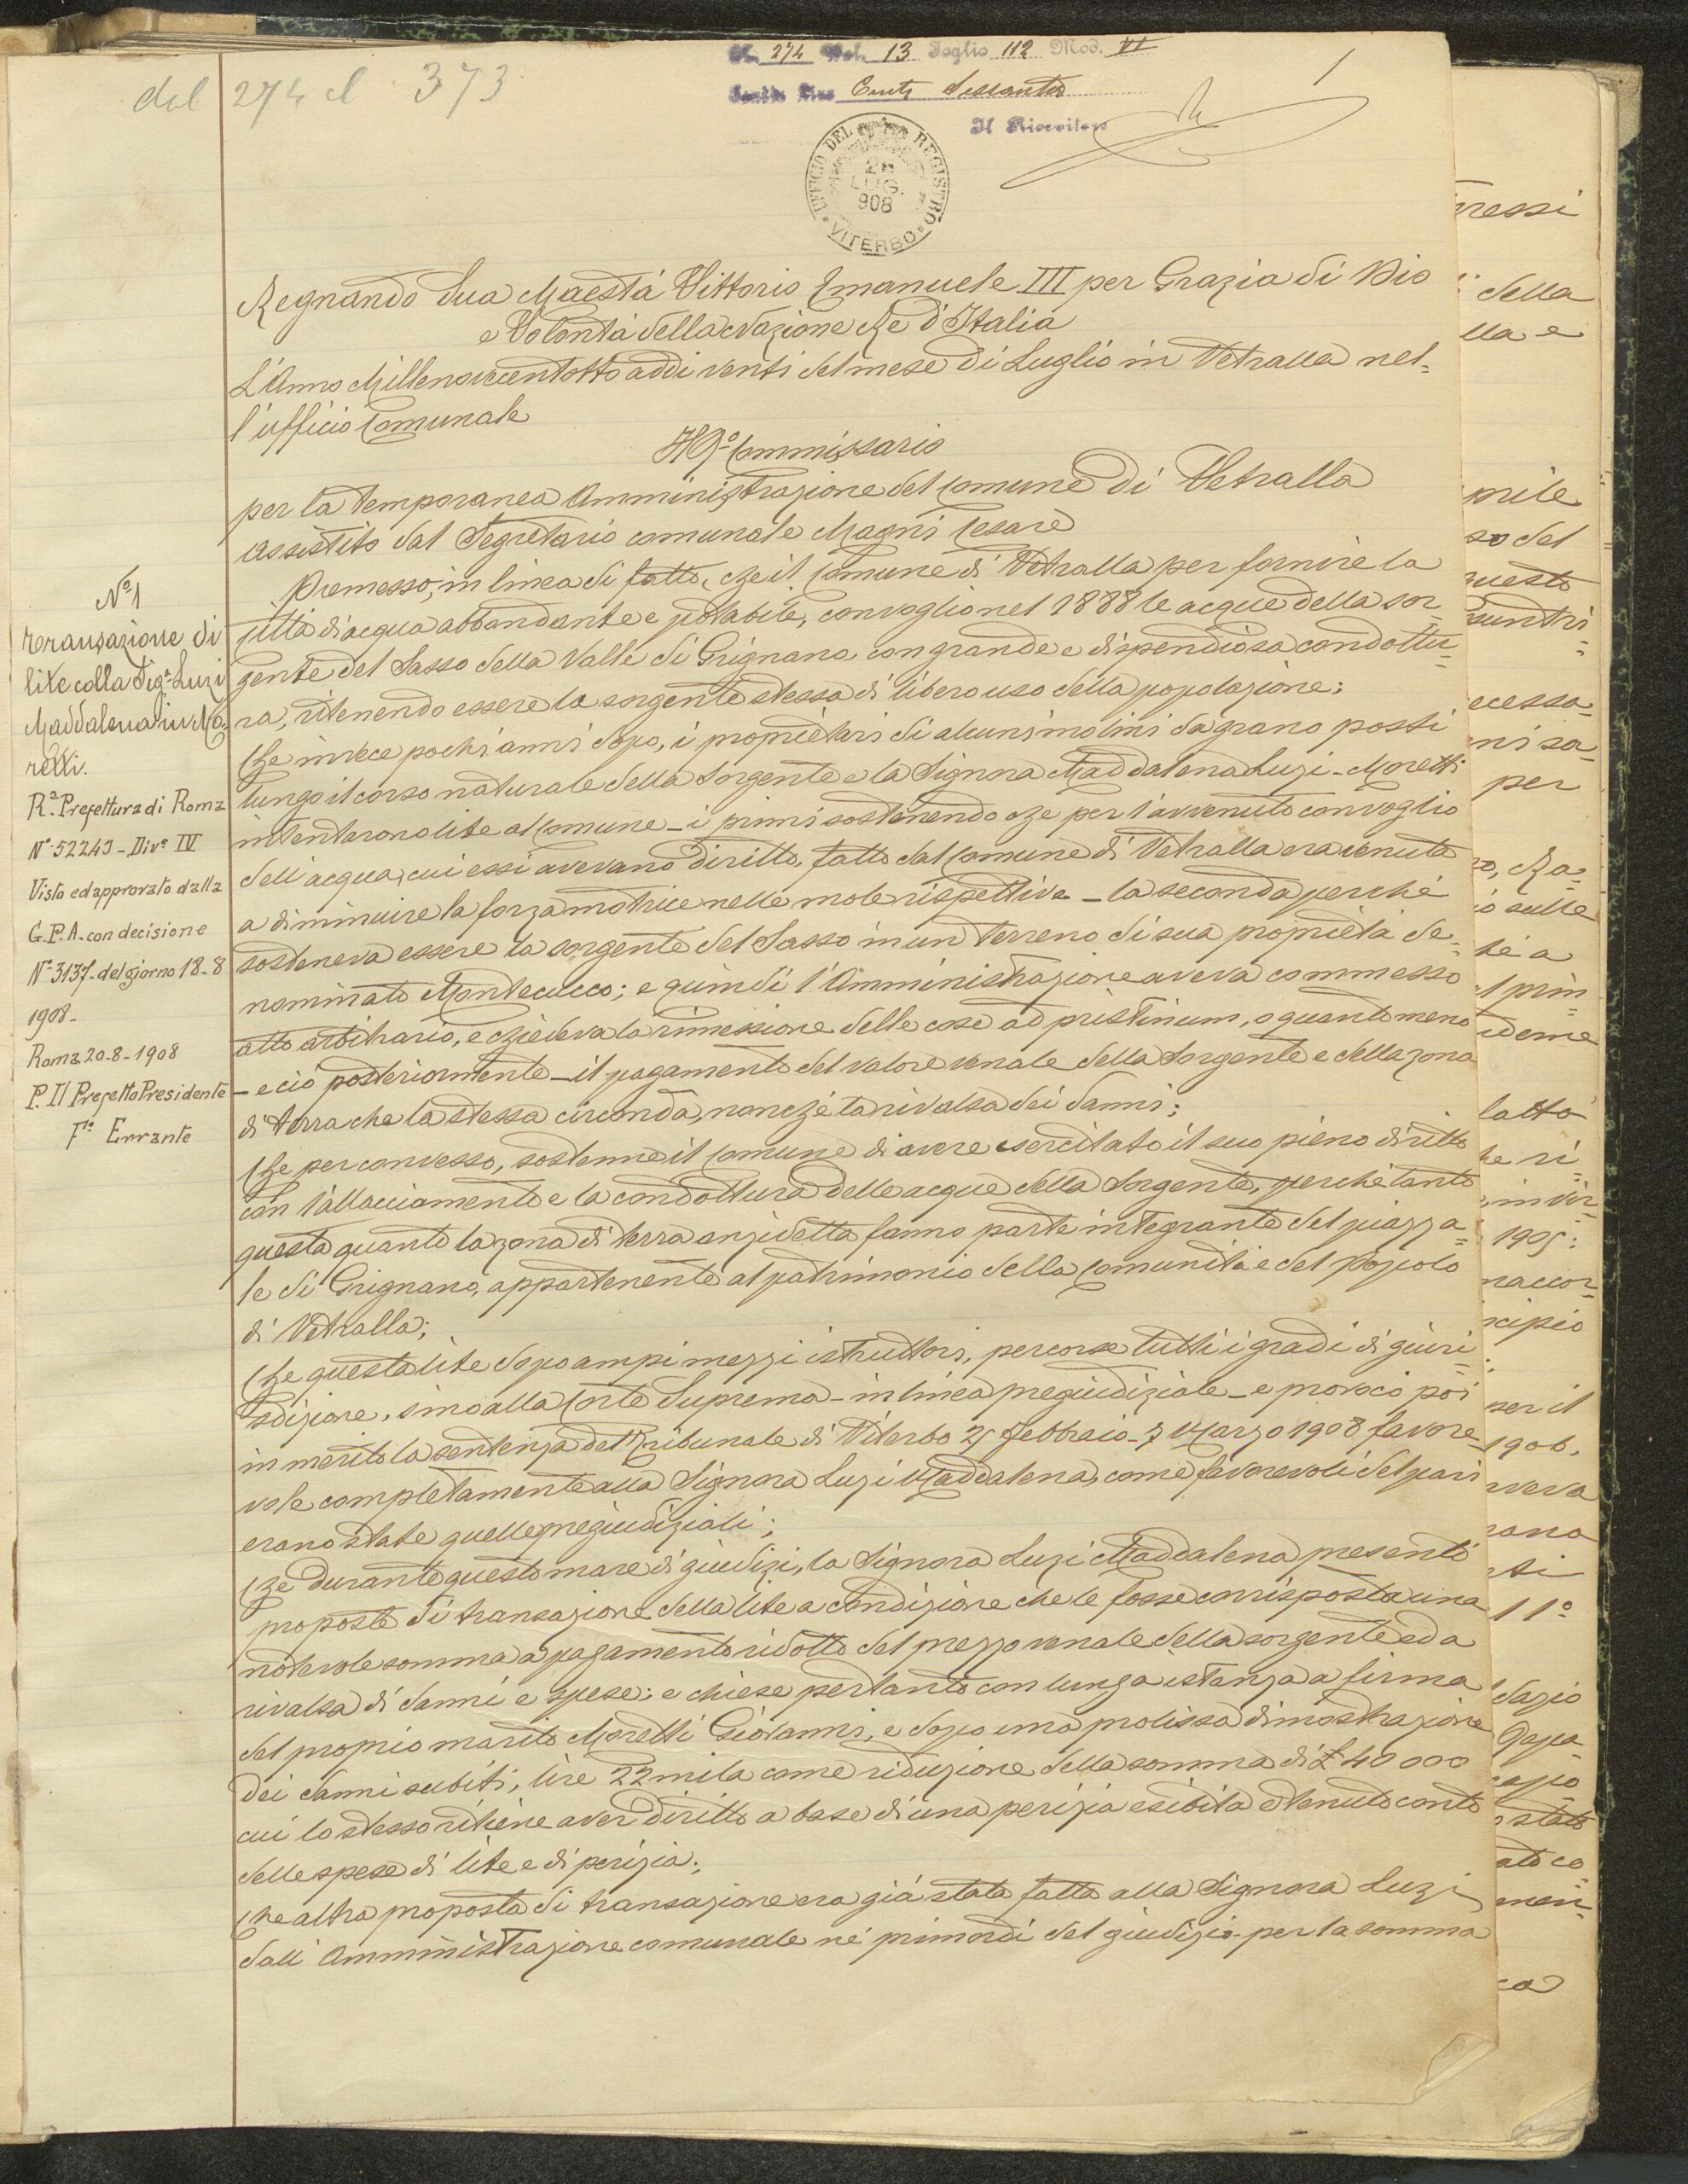 del 274 al 373
N. 274 Vol. 13 Foglio 112 Mod. VI
Cent. Sessanta
1
Il Ricevitore
UFFICIO DEL REGISTRO
LUG.
908
VITERBO
Regnando Sua Maestà Vittorio Emanuele III per Grazia di Dio
e Volontà della Nazione Re d'Italia
L'Anno Millenovecentotto addi venti del mese di Luglio in Vetralla nel-
l'ufficio Comunale
Il R.º Commissario
per la temporanea Amministrazione del Comune di Vetralla
assistito dal Segretario comunale Magni Cesare
Premesso, in linea di fatto, che il Comune di Vetralla per fornire la
città di acqua abbondante e potabile, convogliò nel 1888 le acque della sor-
gente del Sasso della Valle di Grignano con grande e dispendiosa condottu-
ra, ritenendo essere la sorgente stessa di libero uso della popolazione;
Che invece pochi anni dopo, i proprietari di alcuni molini da grano posti
lungo il corso naturale della Sorgente e la Signora Maddalena Luzi-Moretti
intentarono lite al Comune - i primi sostenendo che per l'avvenuto convoglio
dell'acqua, cui essi avevano diritto, fatto dal Comune di Vetralla era venuta
a diminuire la forza motrice nelle mole rispettive - la seconda perchè
sosteneva essere la sorgente del Sasso in un terreno di sua proprietà de-
nominato Montecucco; e quindi l'Amministrazione aveva commesso
atto arbitrario, e chiedeva la rimessione delle cose ad pristinum, o quanto meno
- e ciò posteriormente - il pagamento del valore venale della Sorgente e della zona
di terra che la stessa circonda, nonchè la rivalsa dei danni;
Che per converso, sostenne il Comune di avere esercitato il suo pieno diritto
con l'allacciamento e la condottura delle acque della Sorgente, perchè tanto
questa quanto la zona di terra anzidetta fanno parte integrante del piazza-
le di Grignano, appartenente al patrimonio della Comunità e del Popolo
di Vetralla;
Che questa lite dopo ampi mezzi istruttori, percorse tutti i gradi di giuri-
sdizione, sino alla Corte Suprema - in linea pregiudiziale - e provocò poi
in merito la sentenza del Tribunale di Viterbo 25 Febbraio - 7 Marzo 1908 favore-
vole completamente alla Signora Luzi Maddalena, come favorevoli del pari
erano state quelle pregiudiziali;
Che durante questo mare di giudizi, la Signora Luzi Maddalena presentò
proposte di transazione della lite a condizione che le fosse corrisposta una
notevole somma a pagamento ridotto del prezzo venale della sorgente ed a
rivalsa di danni e spese: e chiese pertanto con lunga istanza a firma
del proprio marito Moretti Giovanni, e dopo una prolissa dimostrazione
dei danni subiti, lire 22 mila come riduzione della somma di £ 40 000
cui lo stesso ritiene aver diritto a base di una perizia esibita e tenuto conto
delle spese di lite e di perizia;
Che altra proposta di transazione era già stata fatta alla Signora Luzi
dall'Amministrazione comunale nè primordi del giudizio per la somma
Nº 1
Transazione di
lite colla Sigª Luzi
Maddalena in Mo-
retti.
Rª Prefettura di Roma
Nº 52243 - Divº IV
Visto ed approvato dalla
G.P.A. con decisione
Nº 3137 - del giorno 18-8
1908 -
Roma 20-8-1908
P. Il Prefetto Presidente
Fº Errante
della
lla e
so del
questo
per
sulle
1905:
per il
1906,
11º
stato